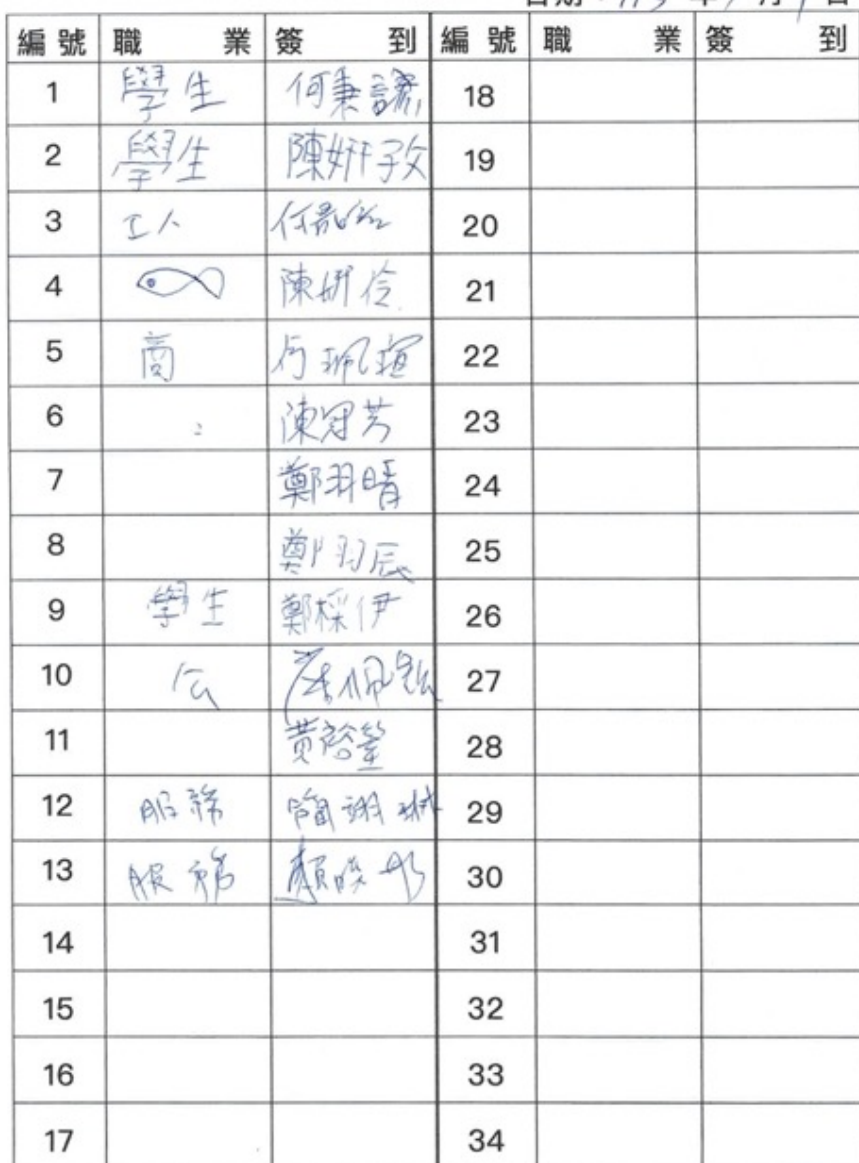 編號 職業 簽到 編號 職業 簽到
1 學生 何秉謙 18
2 學生 陳妍孜 19
3 工人 20
4 陳妍伶 21
5 商 何珮瑄 22
6 陳冠芳 23
7 鄭羽晴 24
8 鄭羽辰 25
9 學生 鄭採伊 26
10 公 27
11 黃裕 28
12 服務 簡翊琳 29
13 服務 顏 30
14 31
15 32
16 33
17 34